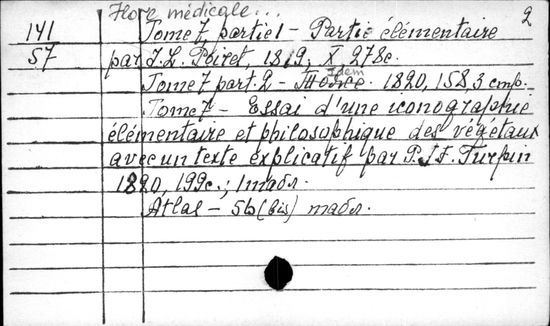 Flore médicale... 2
141 Tome 7 partie 1 - Partie élémentaire
57 par J.L. Poiret, 1819, X, 278с.
Tome 7 part. 2 - Idem. 1820, 158, 3 стр.
Tome 7 - Essai d'une iconographie
élémentaire et philosophique des végétaux
avec un texte explicatif par P.J.F. Turpin
1820, 199с.; 1 табл.
Atlas - 56 (bis) табл.